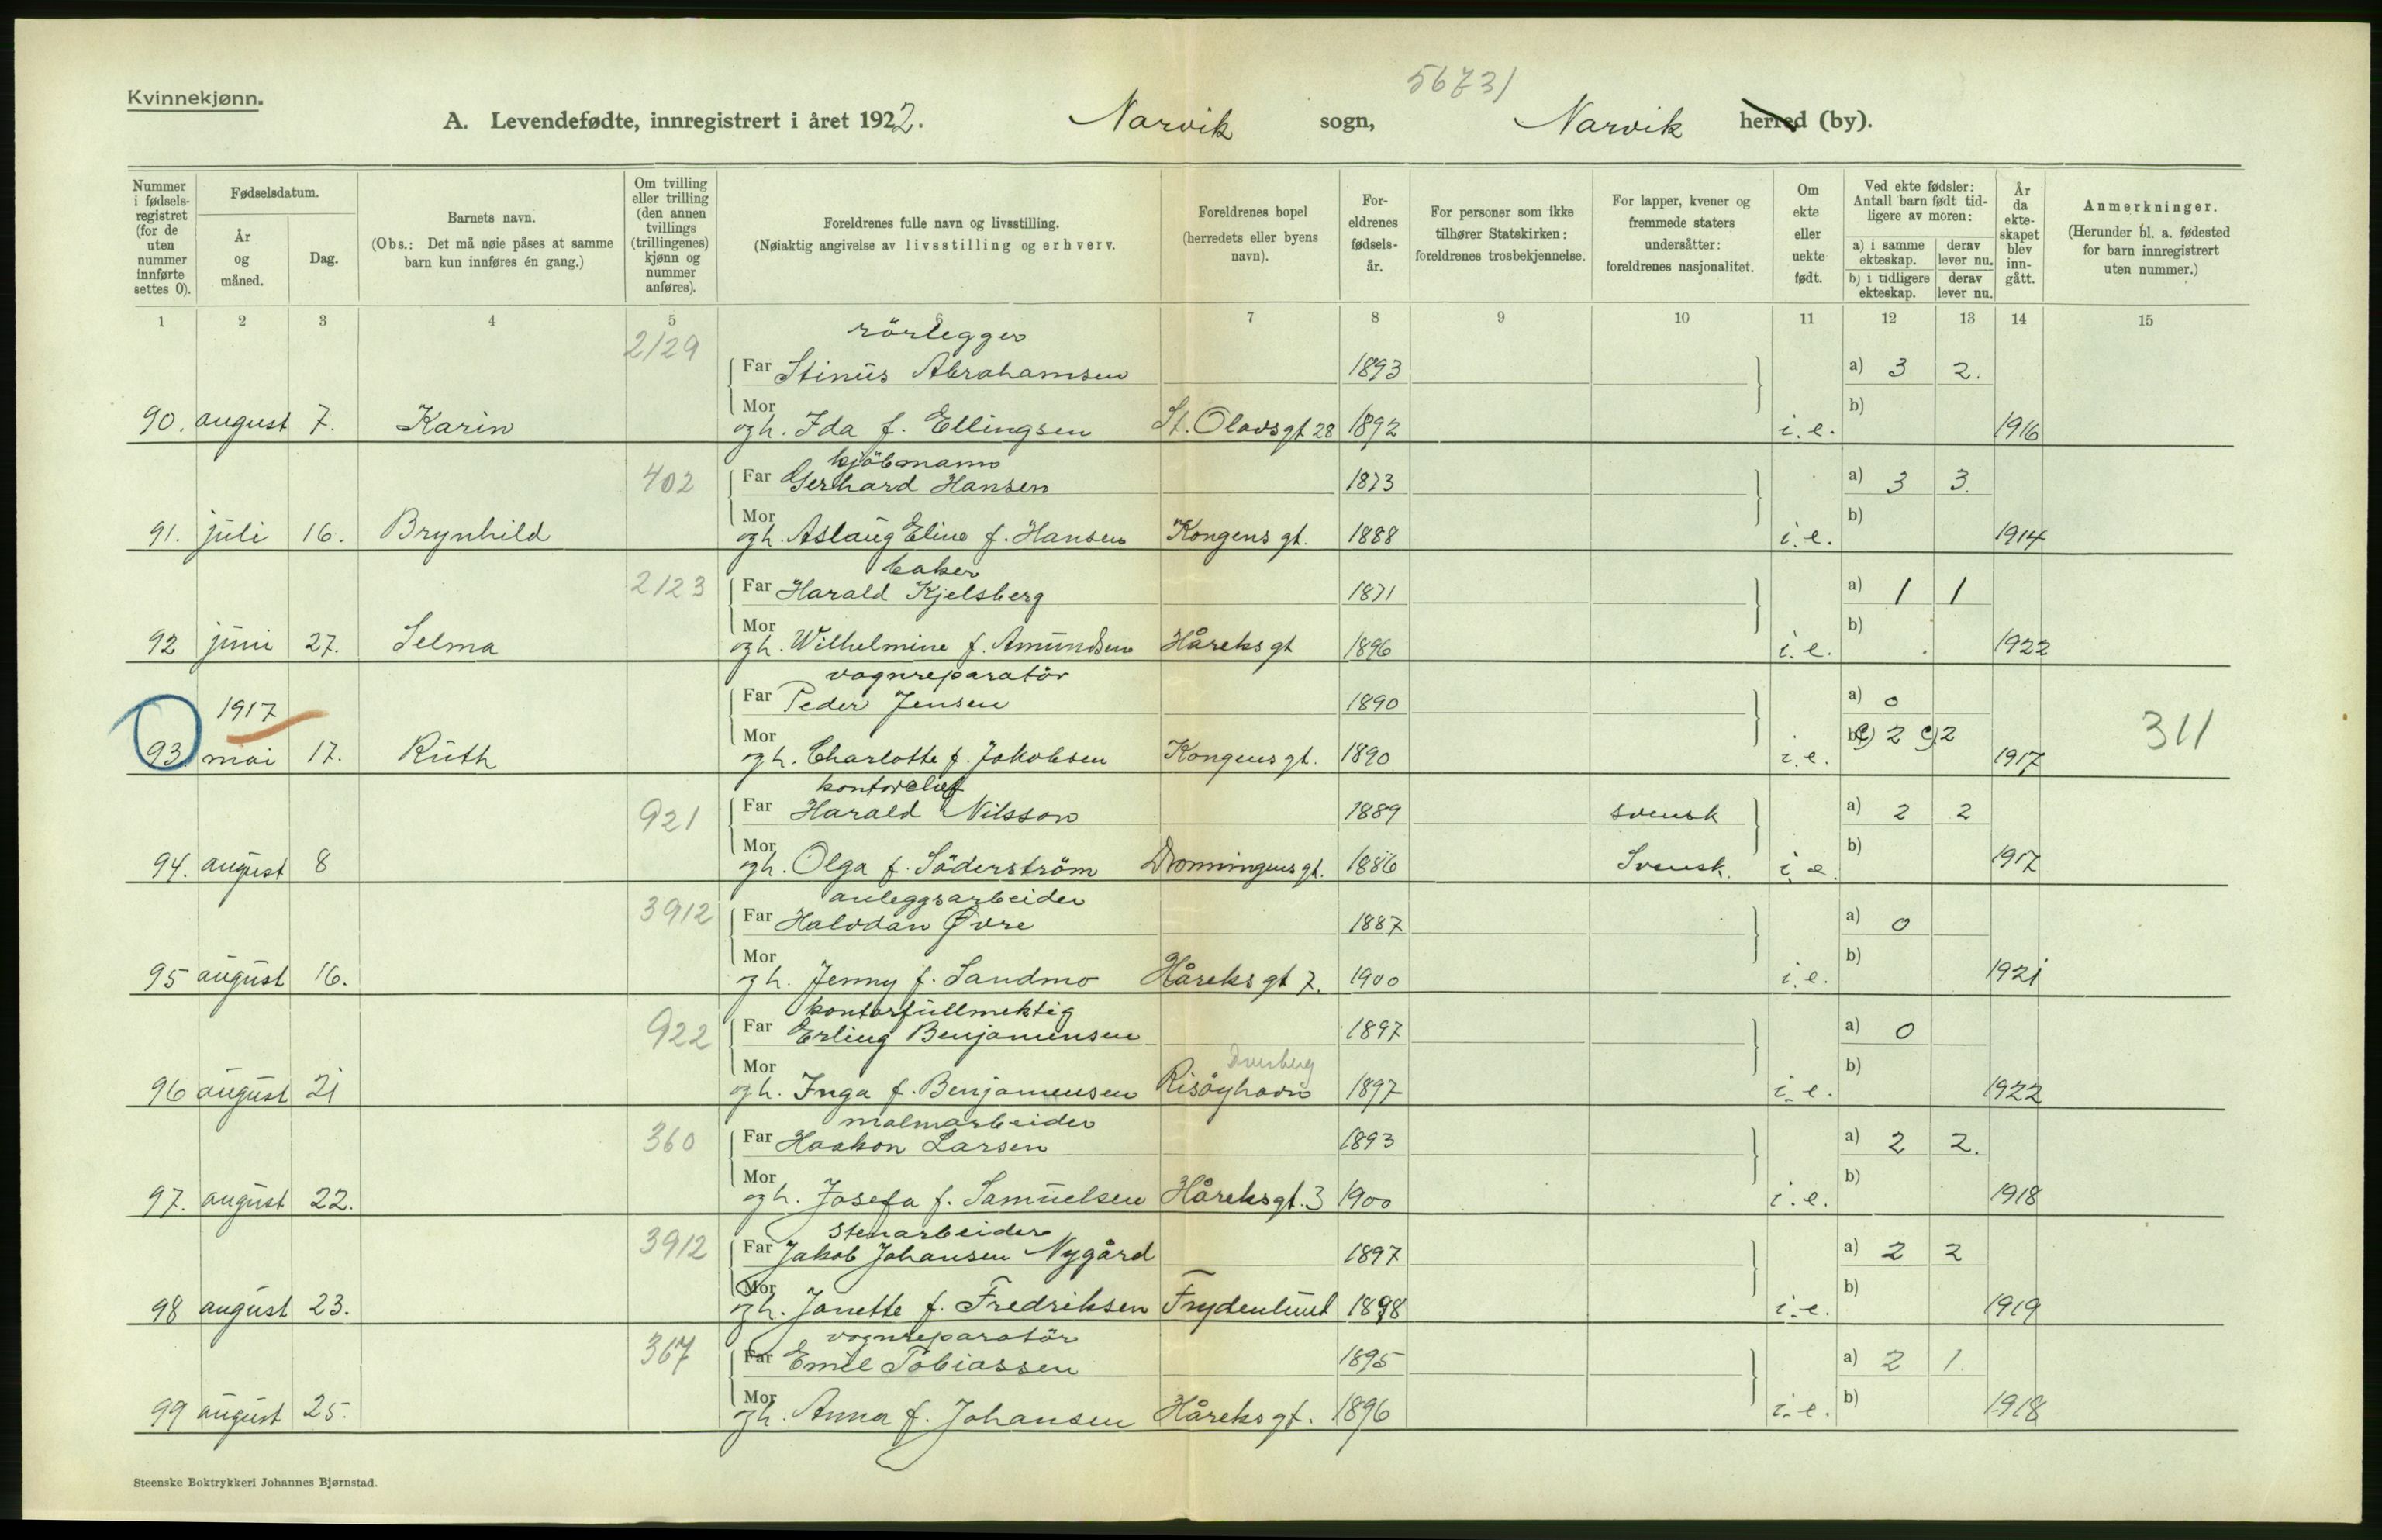 56731
Kvinnekjønn.
A. Levendefødte, innregistrert i året 1922. Narvik sogn, Narvik herred (by).
Nummer i fødselsregistret (for de uten nummer innførte settes 0).
Fødselsdatum.
År og måned.
Dag.
Barnets navn.
(Obs.: Det må nøie påses at samme barn kun innføres én gang.)
Om tvilling eller trilling (den annen tvillings (trillingenes) kjønn og nummer anføres).
Foreldrenes fulle navn og livsstilling.
(Nøiaktig angivelse av livsstilling og erhverv.)
Foreldrenes bopel (herredets eller byens navn).
Foreldrenes fødselsår.
For personer som ikke tilhører Statskirken: foreldrenes trosbekjennelse.
For lapper, kvener og fremmede staters undersåtter: foreldrenes nasjonalitet.
Om ekte eller uekte født.
Ved ekte fødsler: Antall barn født tidligere av moren:
a) i samme ekteskap. derav lever nu.
b) i tidligere ekteskap. derav lever nu.
År da ekteskapet blev inngått.
Anmerkninger.
(Herunder bl. a. fødested for barn innregistrert uten nummer.)
1 2 3 4 5 6 7 8 9 10 11 12 13 14 15
rörlegger
2/29 Far Stinus Abrahamsen 1893 a) 3 2.
Mor b)
90. august 7. Karin og h. Ida f. Ellingsen St. Olavsgt 28 1892 i.e. 1916
kjöbmann
402 Far Gerhard Hansen 1873 a) 3 3.
Mor b)
91. juli 16. Brynhild og h. Aslaug Eline f. Hansen Kongens gt. 1888 i.e. 1914
baker
2/23 Far Harald Kjelsberg 1871 a) 1 1
Mor b)
92 juni 27. Selma og h. Wilhelmine f. Amundsen Håreks gt 1896 i.e. 1922
vognreparatör
1917 Far Peder Jensen 1890 a) 0
Mor b) 2 2 311
93 mai 17. Ruth og h. Charlotte f. Jakobsen Kongens gt. 1890 i.e. 1917
kontorchef
921 Far Harald Nilsson 1889 svensk a) 2 2
Mor b)
94. august 8 og h. Olga f. Söderström Dronningens gt. 1886 Svensk. i.e. 1917
anleggsarbeider
3912 Far Halvdan Øvre 1887 a) 0
Mor b)
95 august 16. og h. Jenny f. Sandmo Håreks gt 7. 1900 i.e. 1921
kontorfullmektig
922 Far Erling Benjaminsen 1897 a) 0
Mor Dverberg b)
96 august 21 og h. Inga f. Benjamensen Risöyhavn 1897 i.e. 1922
malmarbeider
360 Far Haakon Larsen 1893 a) 2 2.
Mor b)
97. august 22. og h. Josefa f. Samuelsen Håreksgt. 3 1900 i.e. 1918
Stenarbeider
3912 Far Jakob Johansen Nygård 1897 a) 2 2
Mor b)
98 august 23. og h. Janette f. Fredriksen Frydenlund 1898 i.e. 1919
vognreparatör
367 Far Emil Tobiassen 1895 a) 2 1.
Mor b)
99 august 25. og h. Anna f. Johansen Håreks gt. 1896 i.e. 1918
Steenske Boktrykkeri Johannes Bjørnstad.